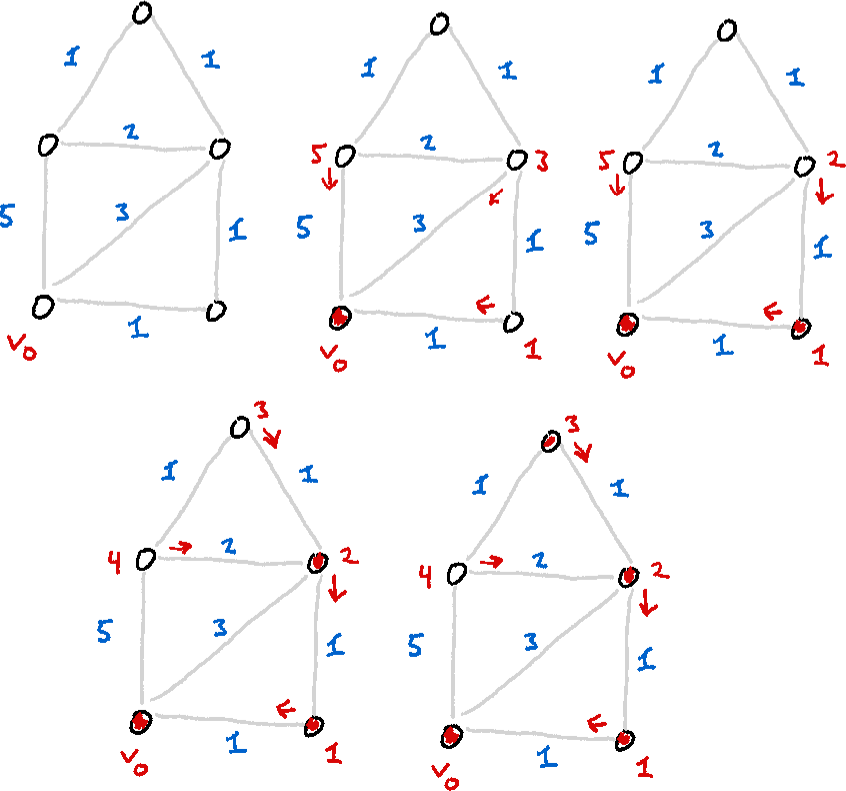 1 1
2
5 3 1
1
v₀
1 1
5 2 3
5 3 1
1
v₀ 1
1 1
5 2 2
5 3 1
1
v₀ 1
3
1 1
4 2 2
5 3 1
1
v₀ 1
3
1 1
4 2 2
5 3 1
1
v₀ 1